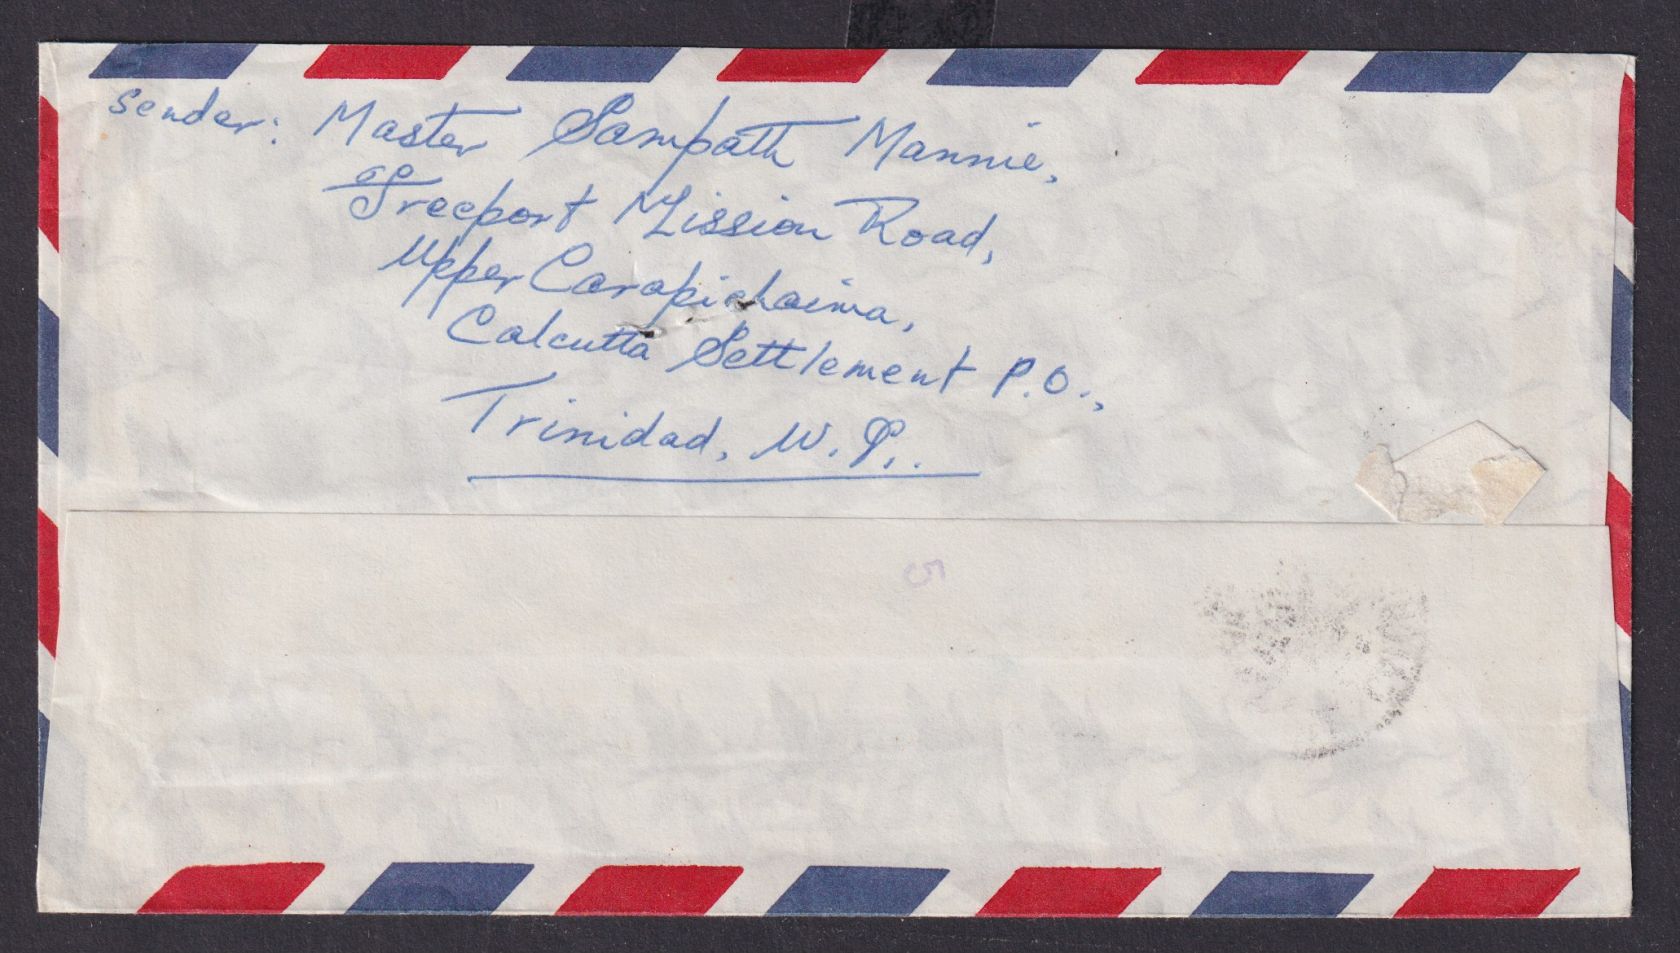 Sender: Master Sampath Mannie,
Freeport Mission Road,
Upper Carapichaima,
Calcutta Settlement P.O.,
Trinidad, W.I..
5